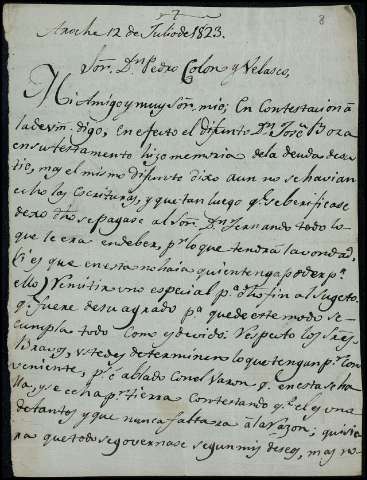 8
Aroche 12 de Julio de 1823.
Sor. Dn. Pedro Colon y Velasco,
Mi Amigo y muy Sor. mio; En Contestacion â
la de vm. digo, en efecto el difunto Dn. Jose
en su testamento hizo memoria de la deuda de su
tio, mas el mismo difunto dixo aun no se havian
echo las Escrituras, y que tan luego qe. se berificase
dexó dho se pagase al Sor. Dn. Fernando todo lo
que le era en deber, pr. lo que tendrá la vondad,
(si es que en esta no haia quien tenga poder pa.
ello) remitir uno especial pa. dho fin al Sugeto
qe. fuere de su agrado pa. que de este modo se
cumpla todo como es devido. Respecto los tres
Bravos, ustedes determinen lo que tengan pr. con
veniente, pr. é ablado con el Varon qe. en esta se ha
lla, y se echa pr. tierra Contestando qe. el es uno
de tantos y que nunca faltara â la razon; quisie
ra que todo se governase segun mis deseos, mas no